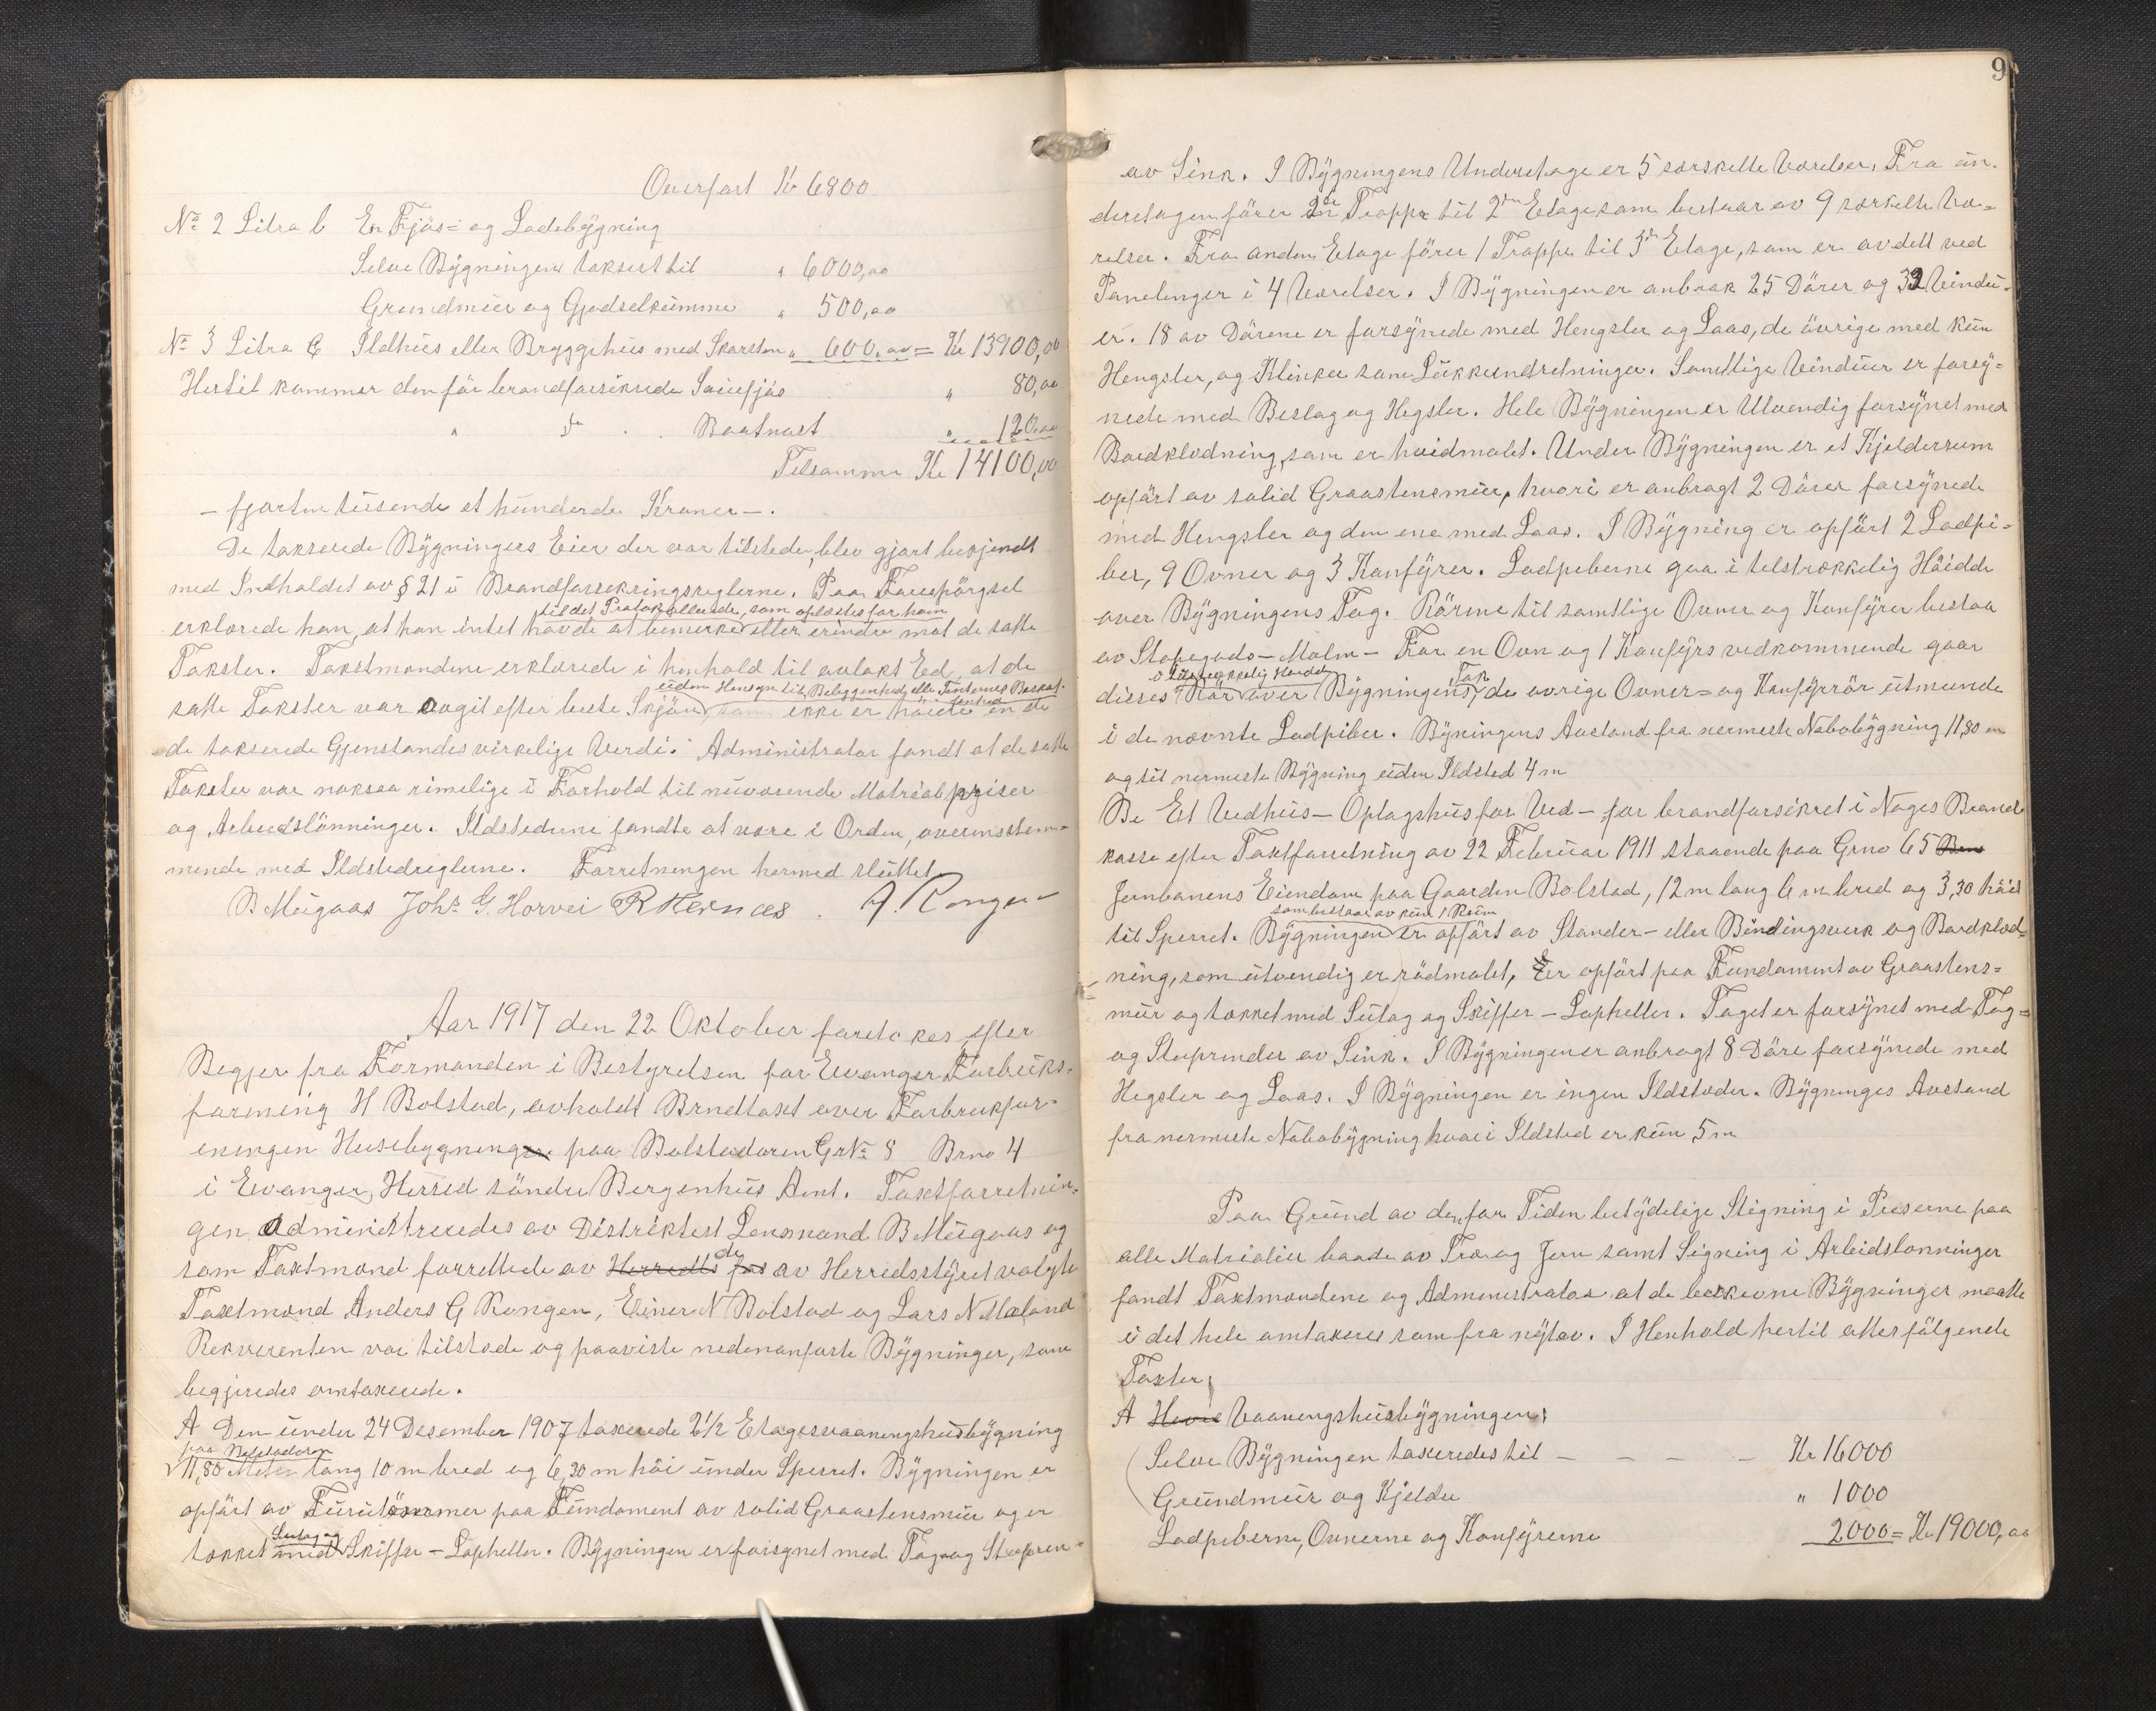 Overført Kr 6800
No 2 Litra b En Fjøs= og Ladebygning
Selve Bygningen taksert til " 6000,00
Grundmur og Gjødselkumme " 500,00
No 3 Litra C Ildhus eller Bryggehus med Skorsten " 600,00 = Kr 13900,00
Hertil kommer den før brandforsikrede Sauefjøs " 80,00
" do . . Baatnøst " 120,00
Tilsammen Kr 14100,00
– fjorten tusende et hunderde Kroner –.
De takserede Bygningers Eier der var tilstede, blev gjort bekjendt
med Indholdet av § 21 i Brandforsekringsreglerne. Paa Forespørgsel
til det Protokollerede, som oplæstes for ham
erklærede han, at han intet havde at bemerke eller erindre mot de satte
Takster. Takstmændene erklærede i henhold til avlakt Ed, at de
uden Hensyn til Beliggenhed eller
satte Takster var avgit efter beste Skjøn ikke er høiere en de
de takserede Gjenstandes virkelige Verdi. Administrator fandt at de satte
Takster var noksaa rimelige i Forhold til nuværende Matrialpriser
og Arbeidslønninger. Ildstederne fandtes at være i Orden, overensstem=
mende med Ildstedreglerne. Forretningen hermed sluttet
B Mugaas Johs G. Horvei R Hernæs . A. Rongen
Aar 1917 den 22 Oktober foretokes efter
Begjer fra Formanden i Bestyrelsen for Evanger Forbruks=
forening H Bolstad, avholdt Brndtaxt over Forbrukfor=
eningen Husebygninger paa Bolstadøren GrNo 8 Brno 4
i Evanger Herred søndre Bergenhus Amt. Taxtforretnin=
gen Administreredes av Distriktest Lensmand B Mugaas og
de
som Taxtmænd forrettede av Herredts for av Herredsstyret valgte
Taxtmænd Anders G Rongen, Einer N Bolstad og Lars N Mæland
Rekverenten var tilstede og paaviste nedenanførte Bygninger, som
begjæredes omtaxerede.
A Den under 24 Desember 1907 taxerede 2 1/2 Etagesvaaningshusbygning
paa Bolstadøren
11,80 Meter lang 10 m bred og 6,30 m høi under Sperret. Bygningen er
opført av Furutømmer paa Fundament av solid Graastensmur og er
Sutag og
tækket med Skiffer – Lapheller. Bygningen er forsynet med Tag og Stupren=
9
av Sink. I Bygningens Underetage er 5 særskelte Værelser. Fra un=
deretagen fører 2de Trappe til 2den Etage som bestaar av 9 særkelte Væ=
relser. Fra anden Etage fører 1 Trappe til 3de Etage, som er avdelt ved
Panelinger i 4 Værelser. I Bygningen er anbrak 25 Dører og 32 Vindu=
er. 18 av Dørene er forsynede med Hengsler og Laas, de øvrige med kun
Hengsler, og Klinker som Lukkeindretninger. Samtlige Vinduer er forsy=
nede med Beslag og Hegsler. Hele Bygningen er Utvendig forsynet med
Bordklædning, som er hvidmalet. Under Bygningen er et Kjelderrum
opført av solid Graastensmur, hvori er anbragt 2 Dører forsynede
med Hengsler og den ene med Laas. I Bygning er opført 2 Ladpi=
ber, 9 Ovner og 3 Konfyrer. Ladpiberne gaa i telstrækkelig Høidde
over Bygningens Tag. Rørene til samtlige Ovner og Konfyrer bestaa
av Støpegods – Malm – For en Ovn og 1 Konfyrs vedkommende gaar
i tilstrekkelig Høidde Tak
disses Rør over Bygningens, de øvrige Ovner= og Konfyrrør utmunde
i de nævnte Ladpiber. Bygningens Avstand fra nermeste Nabobyggning 11,80 m
og til nermeste Bygning uden Ildsted 4 m
Be Et Vedhus – Oplagshus for Ved – før brandforsikret i Noges Brand
kasse efter Taxtforretning av 22 Februar 1911 staaende paa Grno 65 Brno
Jernbanens Eiendom paa Gaarden Bolstad, 12 m lang 6 m bred og 3,30 høi
som bestaar av kun 1 Rum
til Sperret. Bygningen er opført av Stander– eller Bindingsverk og Bordklæd=
ning, som utvendig er rødmalet, Er opført paa Fundament av Graastens=
mur og tækket med Sutag og Skiffer – Lapheller. Taget er forsynet med Tag=
og Stuprender av Sink. I Bygningen er anbragt 8 Døre forsynede med
Hegsler og Laas. I Bygningen er ingen Ildsteder. Bygninges Avstand
fra nermeste Nabobygning hvori Ildsted er kun 5 m
Paa Grund av den for Tiden betydelige Stigning i Priserne paa
alle Matrialier baade av Træ og Jern samt Signing i Arbeidslønninger
fandt Taxtmændene og Administrator at de beskrevne Bygninger maatte
i det hele omtaxeres som fra nytav. I Henhold hertil attes følgende
Taxter:
A Hovie Vaaningshusbygningen:
Selve Bygningen taxeredes til – – – – Kr 16000
Grundmur og Kjelder " 1000
Ladpiberne, Ovnerne og Konfyrerne 2000 = Kr 19000,00